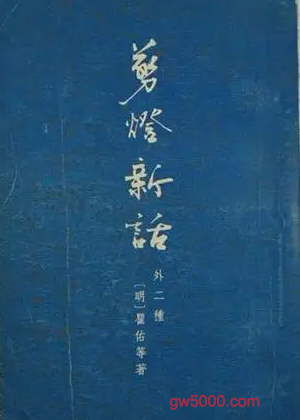 剪燈新話
外二種
〔明〕瞿佑等著
gw5000.com